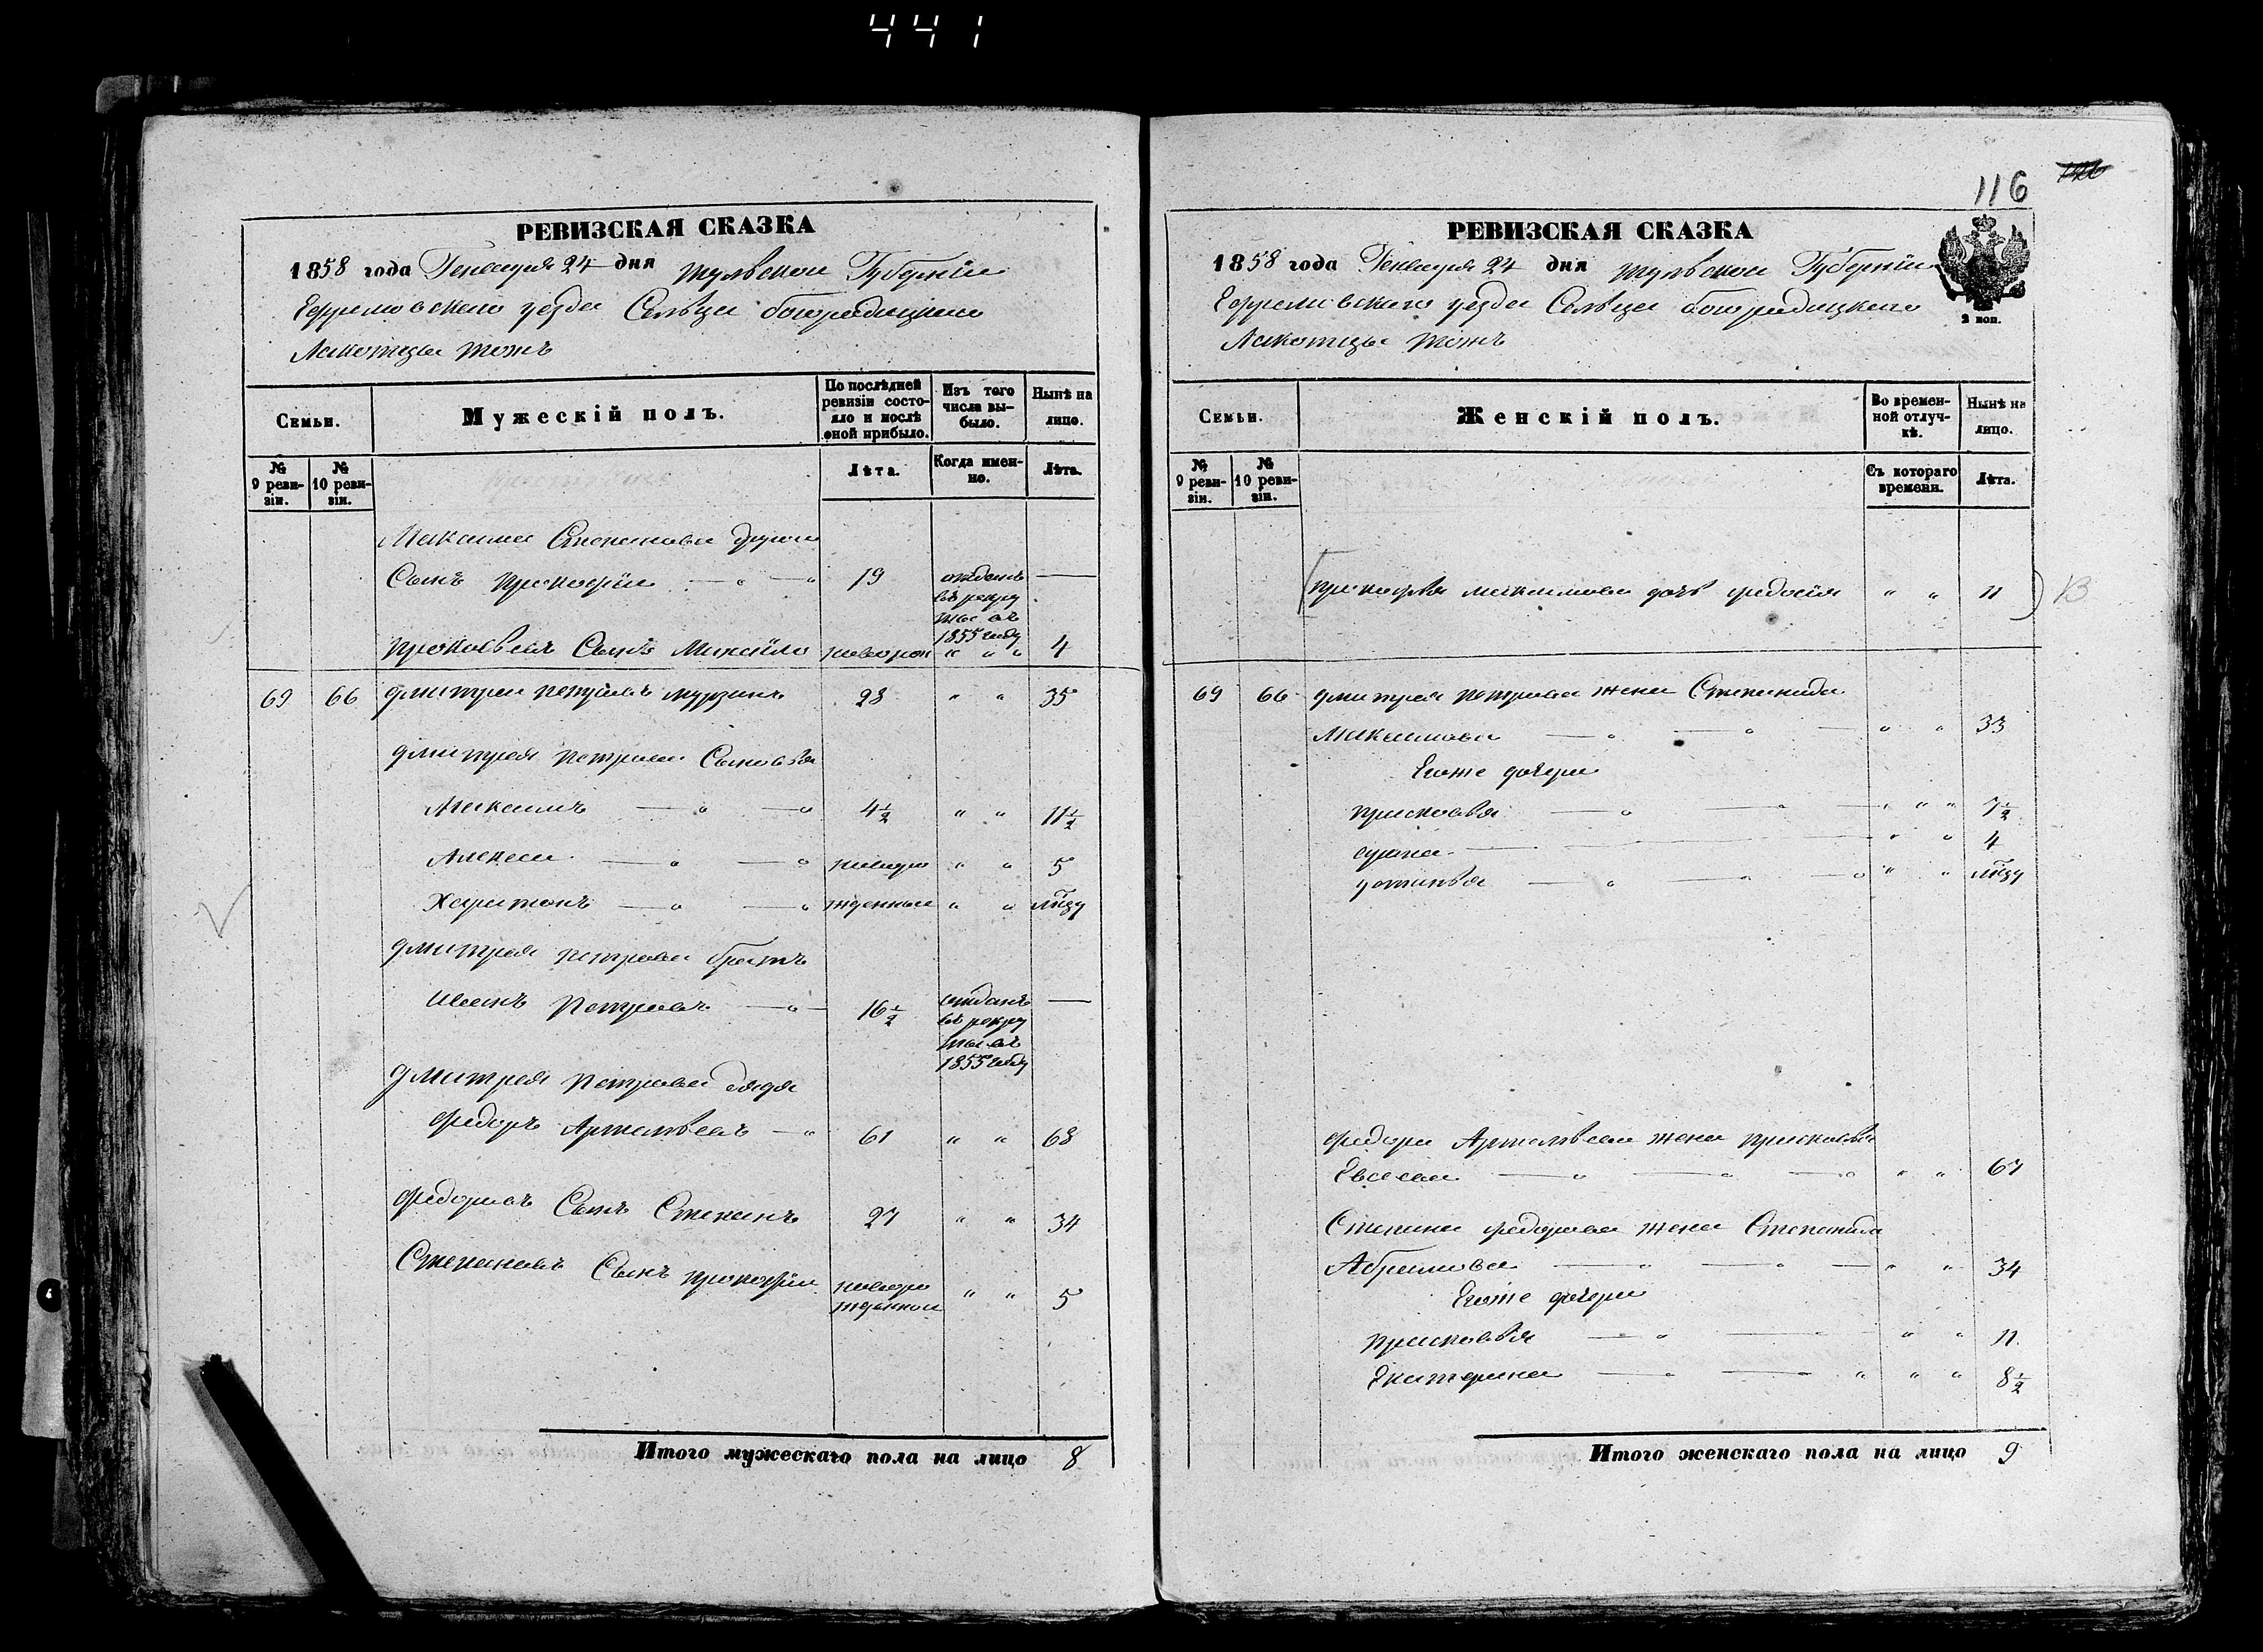 441
РЕВИЗСКАЯ СКАЗКА
1858 года Генваря 24 дня Тульской Губернiи
Ефремовскаго уезда Сельца богородицкаго
тожъ
Семьи.
Мужескiй полъ.
По послѣдней ревизiи состояло и послѣ оной прибыло.
Изъ того числа выбыло.
Нынѣ на лицо.
№ 9 ревизiи.
№ 10 ревизiи.
Лѣта.
Когда именно.
Лѣта.
Максима Степанова другой
Сынъ прокофiй 19 отданъ
въ рекру
ты въ
1855 году
прокофьевъ Сынъ Михайло новорож " " " 4
69 66 дмитрей петровъ мурзинъ 28 " " 35
дмитрея петрова Сыновья
Максимъ 4½ " " 11½
Алексей новоро " " 5
Харитонъ жденные " "
дмитрея петрова братъ
иванъ петровъ 16½ отданъ
въ рекру
ты въ
1855 году
дмитрея петрова дядя
федоръ Артемьевъ 61 " " 68
федоровъ Сынъ Степанъ 27 " " 34
Степановъ Сынъ прокофiй новоро
жденной " " 5
Итого мужескаго пола на лицо 8
116
РЕВИЗСКАЯ СКАЗКА
1858 года Генваря 24 дня Тульской Губернiи
Ефремовскаго уезда Сельца богородицкаго
тожъ
2 коп.
Семьи.
Женскiй полъ.
Во временной отлучкѣ.
Нынѣ на лицо.
№ 9 ревизiи.
№ 10 ревизiи.
Съ котораго времени.
Лѣта.
прокофья максимова дочь федосiя " " 11
69 66 дмитрея петрова жена Степанида
Максимова " " 33
Егоже дочери
прасковья " " " 7½
" " 4
устинья " "
федора Артемьева жена прасковья
Евсеева " " 67
Степана федорова жена Степанида
Абрамова " " 34
Егоже дочери
прасковья " " 11
Екатерина " " " 8½
Итого женскаго пола на лицо 9